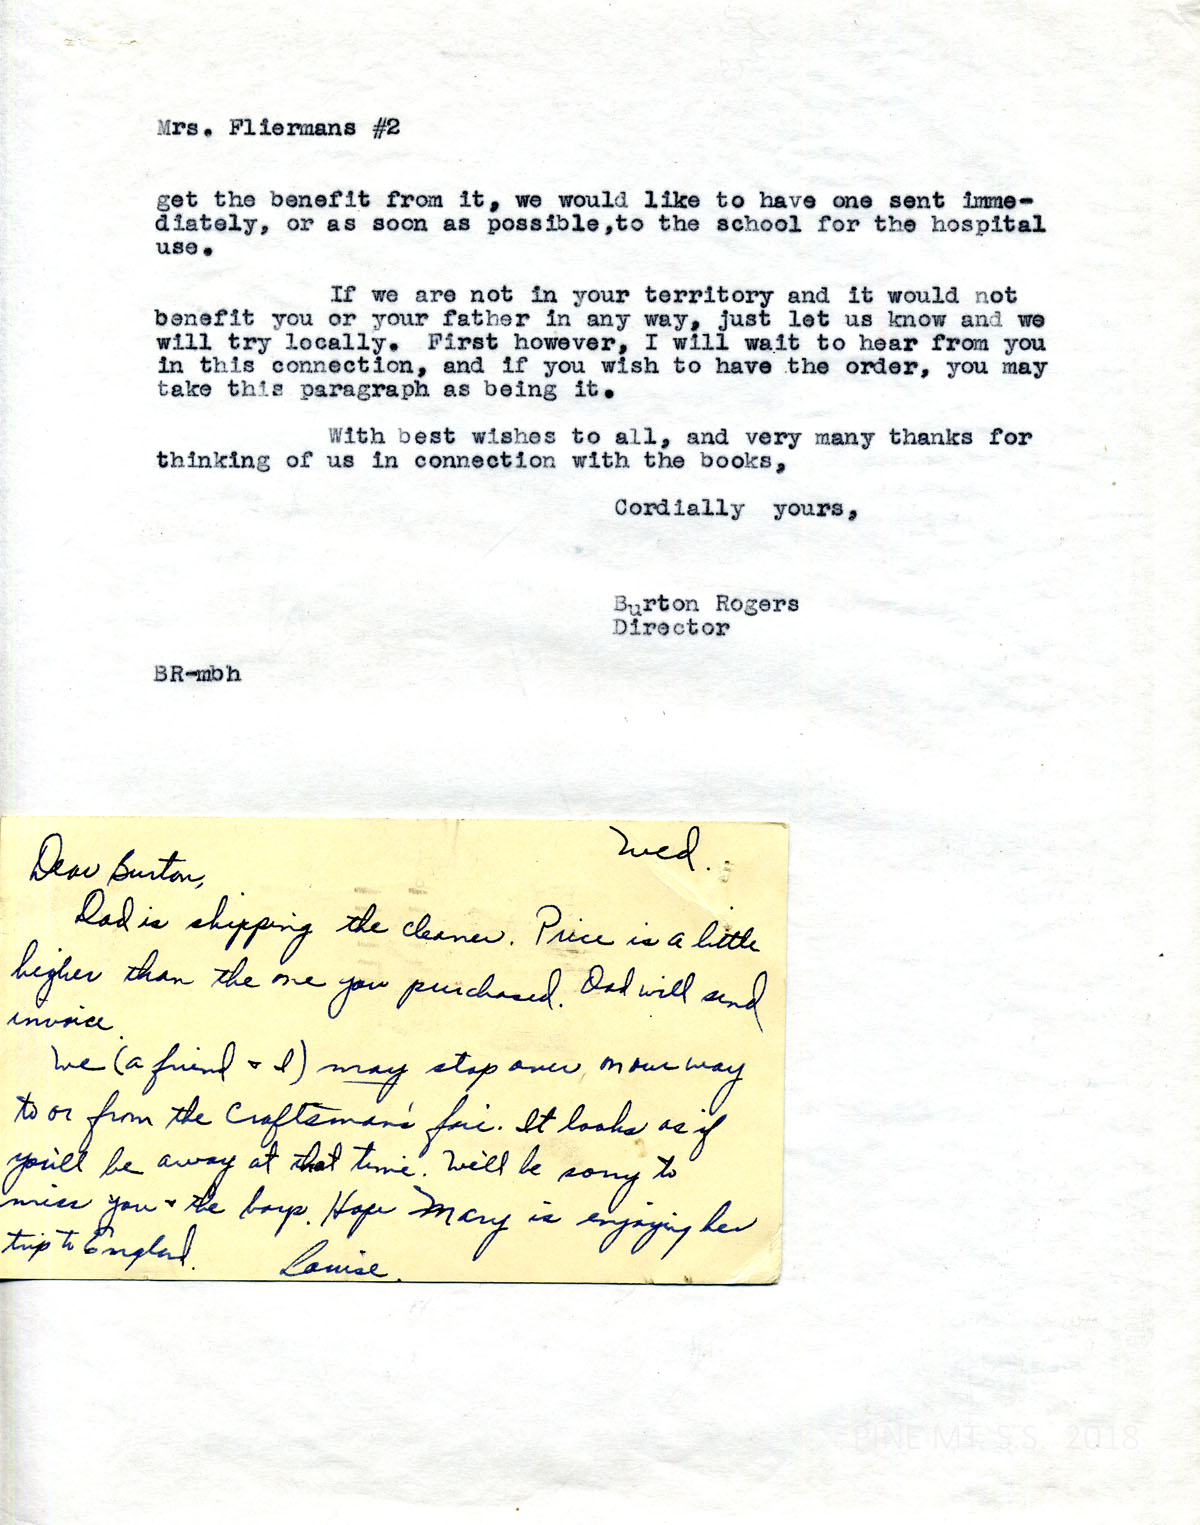 Mrs. Fliermans #2
get the benefit from it, we would like to have one sent imme-
diately, or as soon as possible,to the school for the hospital
use.
If we are not in your territory and it would not
benefit you or your father in any way, just let us know and we
will try locally. First however, I will wait to hear from you
in this connection, and if you wish to have the order, you may
take this paragraph as being it.
With best wishes to all, and very many thanks for
thinking of us in connection with the books,
Cordially yours,
Burton Rogers
Director
BR-mbh
Wed.
Dear Burton,
Dad is shipping the cleaner. Price is a little
higher than the one you purchased. Dad will send
invoice.
We (a friend & I) may stop over on our way
to or from the Craftsman's fair. It looks as if
you'll be away at that time. We'll be sorry to
miss you & the boys. Hope Mary is enjoying her
trip to England.
Louise.
PINE MT. S.S. 2018